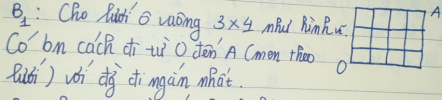 B₁: Cho lưới ô vuông 3×4 như hình vẽ.
A
Có bn cách đi từ O đến A (men theo
lưới) với độ đi ngắn nhất.
O